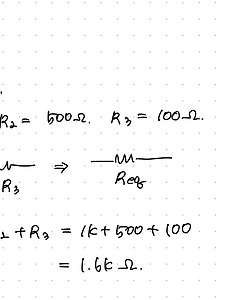 R2 = 500Ω. R3 = 100Ω.
⇒
R3 Req
2 + R3 = 1K + 500 + 100
= 1.6K Ω.